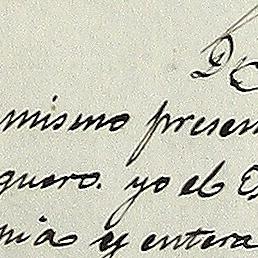 D
mismo presen
guero. yo el Es
nia y entera